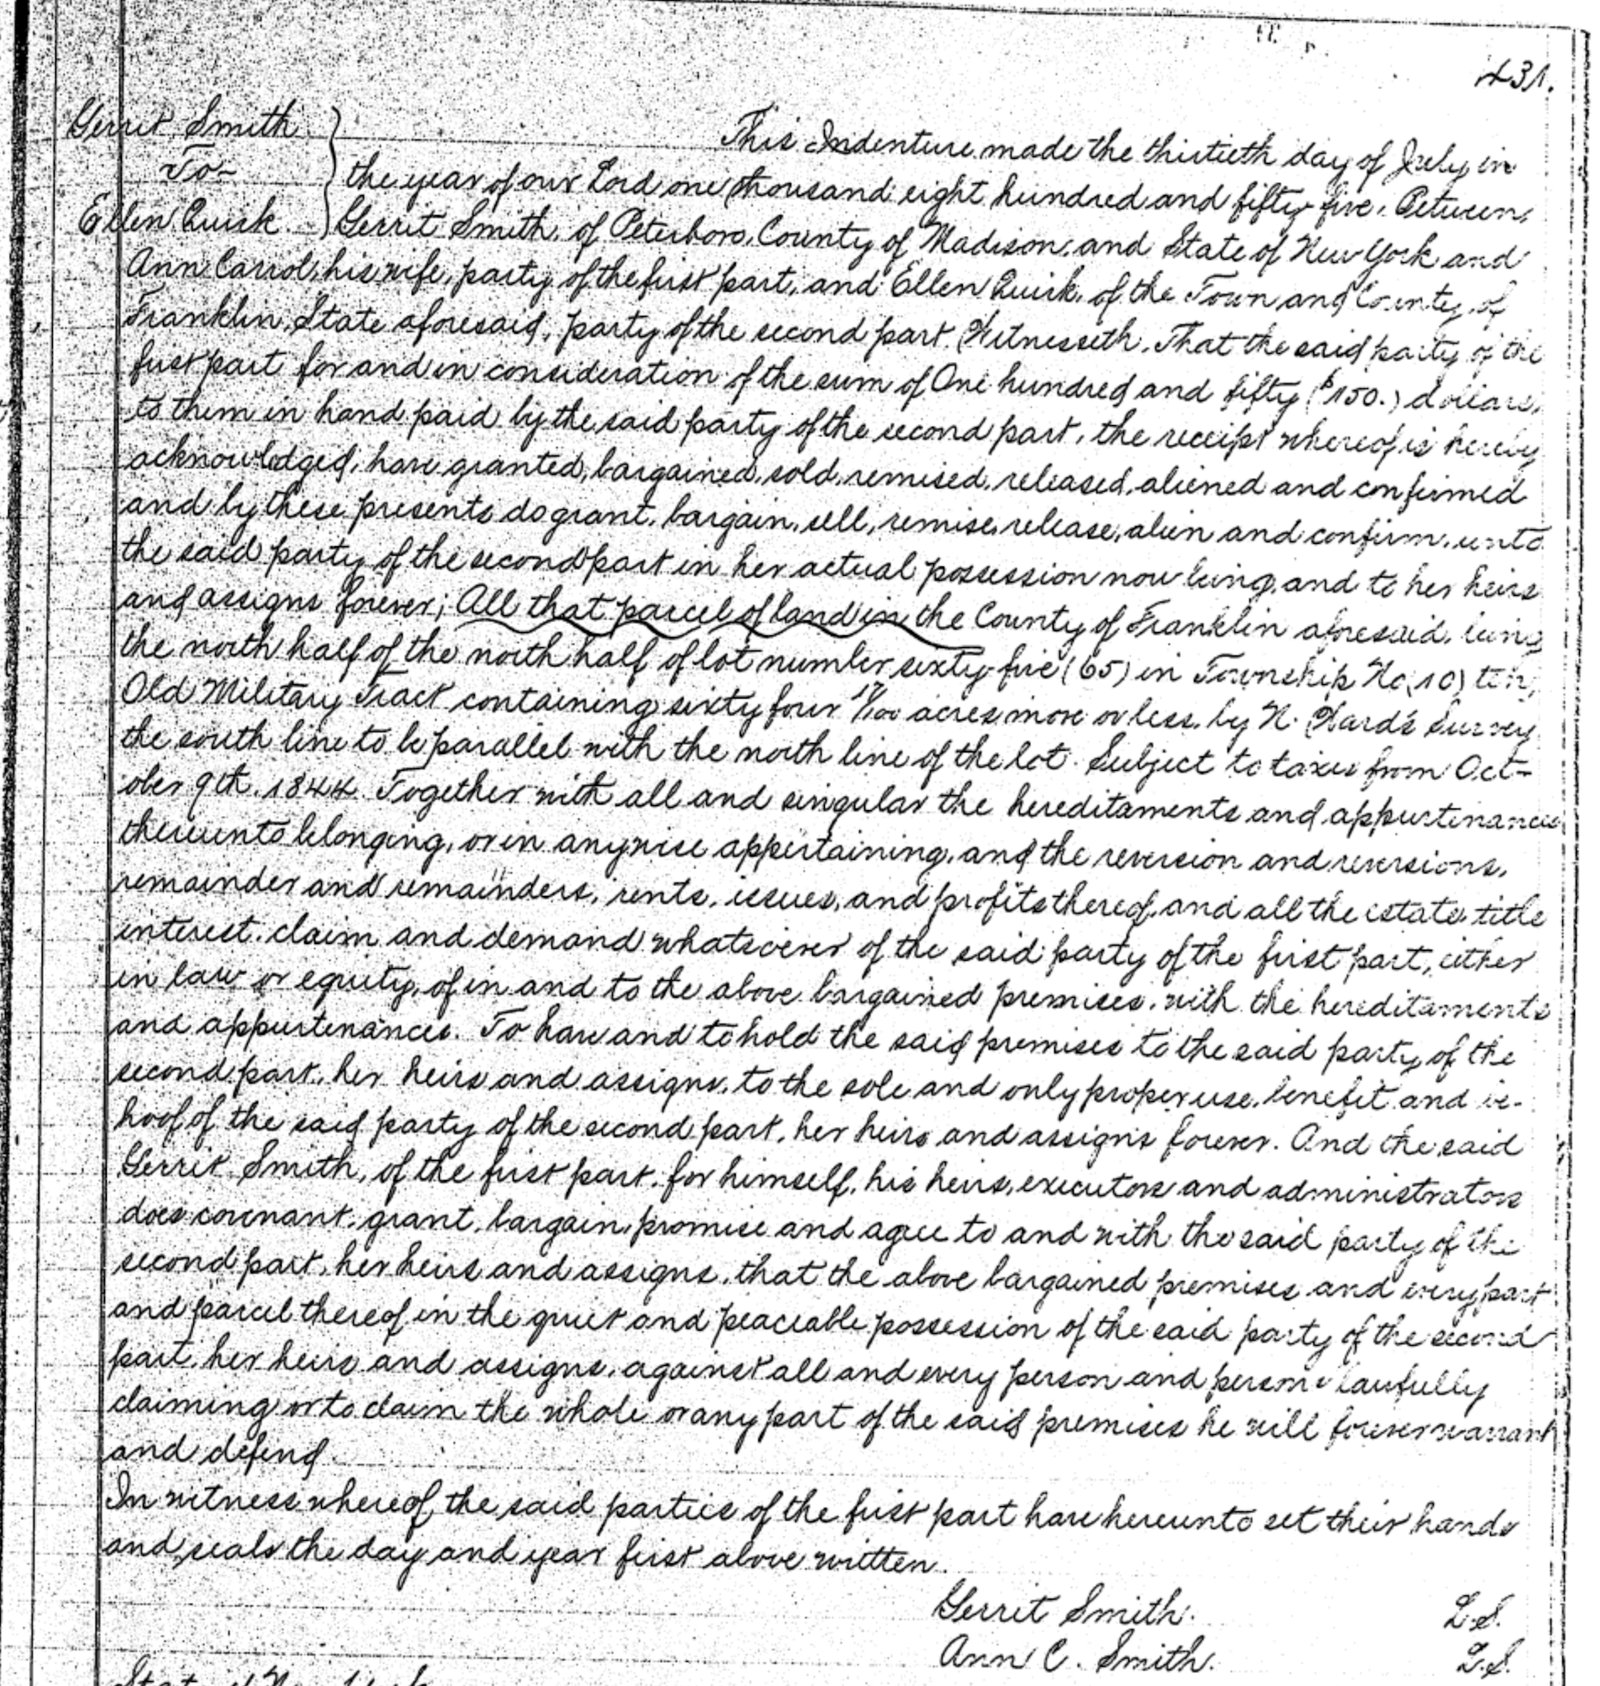 431.
Gerrit Smith
To-
Ellen Quirk
This Indenture made the thirtieth day of July in
the year of our Lord one thousand eight hundred and fifty five. Between,
Gerrit Smith, of Peterboro, County of Madison, and State of New York and
Ann Carrol, his wife, party of the first part, and Ellen Quirk, of the Town and County of
Franklin, State aforesaid, party of the second part. Witnesseth, That the said party of the
first part for and in consideration of the sum of One hundred and fifty ($150.) dollars,
to them in hand paid by the said party of the second part, the receipt whereof is hereby
acknowledged, have granted, bargained, sold, remised, released, aliened and confirmed
and by these presents do grant, bargain, sell, remise, release, alien and confirm, unto
the said party of the second part in her actual possession now being, and to her heirs
and assigns forever; All that parcel of land in the County of Franklin aforesaid, being
the north half of the north half of lot number sixty-five (65) in Township No. (10) ten,
Old Military Tract containing sixty four 17/100 acres more or less, by N. Ward's Survey
the south line to be parallel with the north line of the lot. Subject to taxes from Oct-
ober 9th. 1844. Together with all and singular the hereditaments and appurtenances
thereunto belonging, or in anywise appertaining, and the reversion and reversions,
remainder and remainders, rents, issues, and profits thereof, and all the estate, title
interest, claim and demand whatsoever of the said party of the first part, either
in law or equity, of in and to the above bargained premises, with the hereditaments
and appurtenances. To have and to hold the said premises to the said party of the
second part, her heirs and assigns, to the sole and only proper use, benefit and be-
hoof of the said party of the second part, her heirs and assigns forever. And the said
Gerrit Smith, of the first part, for himself, his heirs, executors and administrators
does covenant, grant, bargain, promise and agree to and with the said party of the
second part, her heirs and assigns, that the above bargained premises and every part
and parcel thereof in the quiet and peaceable possession of the said party of the second
part, her heirs and assigns, against all and every person and persons lawfully
claiming or to claim the whole or any part of the said premises he will forever warrant
and defend.
In witness whereof, the said parties of the first part have hereunto set their hands
and seals the day and year first above written.
Gerrit Smith. L.S.
Ann C. Smith. L.S.
State of New York